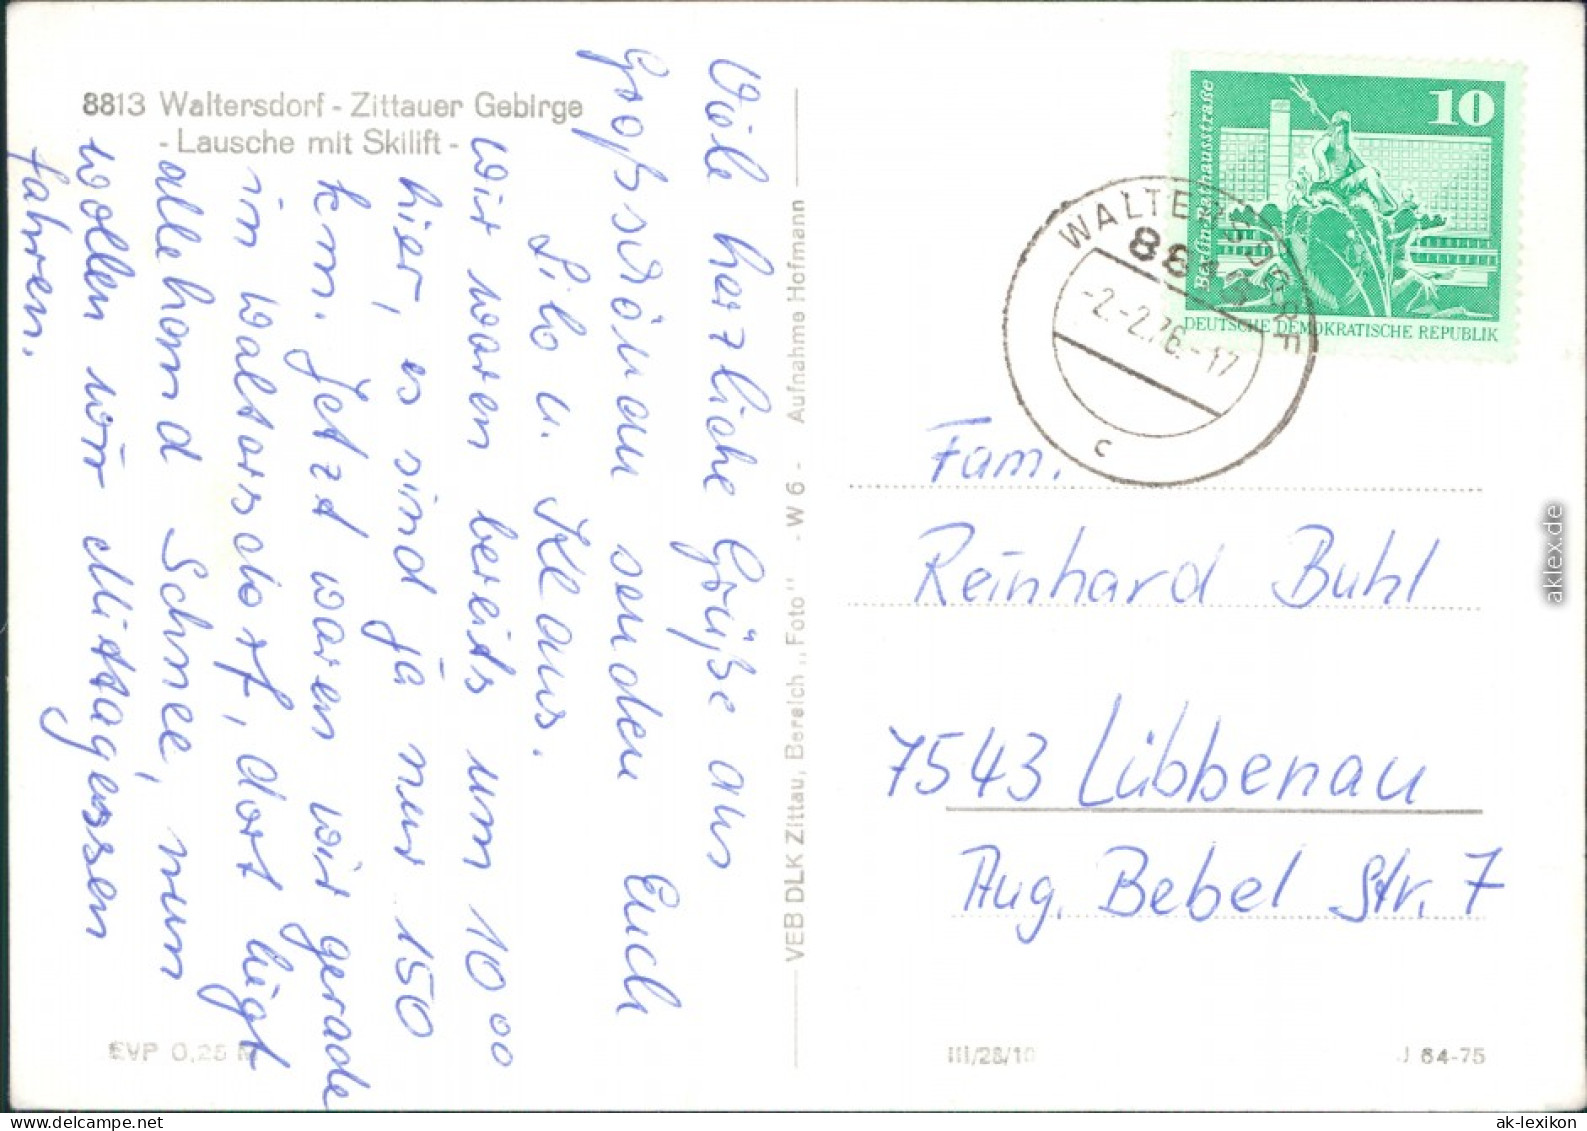 8813 Waltersdorf - Zittauer Gebirge
- Lausche mit Skilift -
Viele herzliche Grüße aus
Großschönau senden Euch
Lilo u. Klaus.
Wir waren bereits um 10 00
hier, es sind ja nur 150
km. Jetzt waren wir gerade
in Waltersdorf, dort liegt
allehand Schnee, nun
wollen wir Mittagessen
fahren.
EVP 0,25 M
VEB DLK Zittau, Bereich „Foto" - W 6 - Aufnahme Hofmann
10
Berlin-Rathausstraße
DEUTSCHE DEMOKRATISCHE REPUBLIK
WALTERSDORF
8813
-2.-2.76.-17
c
Fam.
Reinhard Buhl
7543 Lübbenau
Aug. Bebel Str. 7
III/28/10
J 64-75
aklex.de
ak-lexikon